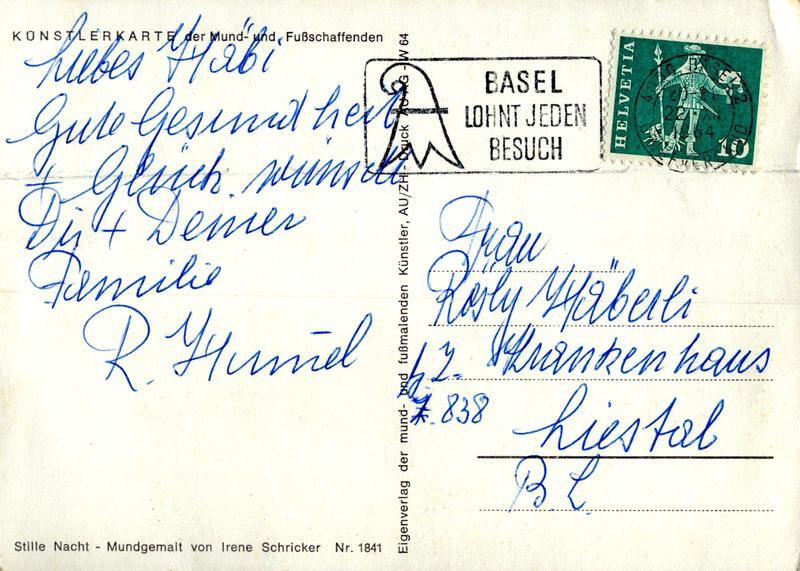 KÜNSTLERKARTE der Mund- und Fußschaffenden
Liebes Häbi
Gute Gesundheit
+ Glück wünscht
Dir + Deiner
Familie
R. Hummel
Stille Nacht - Mundgemalt von Irene Schricker Nr. 1841
Eigenverlag der mund- und fußmalenden Künstler, AU/ZH - Druck AU KG - W 64
BASEL
LOHNT JEDEN
BESUCH
HELVETIA
10
Frau
Rösly Häberli
z. Z. Krankenhaus
Z. 838
Liestal
B. L.